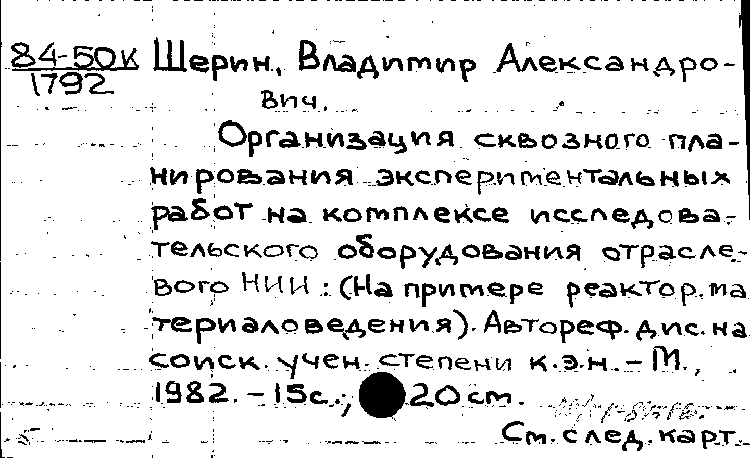 84-50к Щерин, Владимир Александро-
1792
вич.
Организация сквозного пла-
нирования экспериментальных
работ на комплексе исследова-
тельского оборудования отрасле-
вого НИИ: (На примере реактор. ма
териаловедения). Автореф. дис. на
соиск. учен. степени к.э.н. - М.,
1982. - 15с.; 20 см.
См. след. карт.